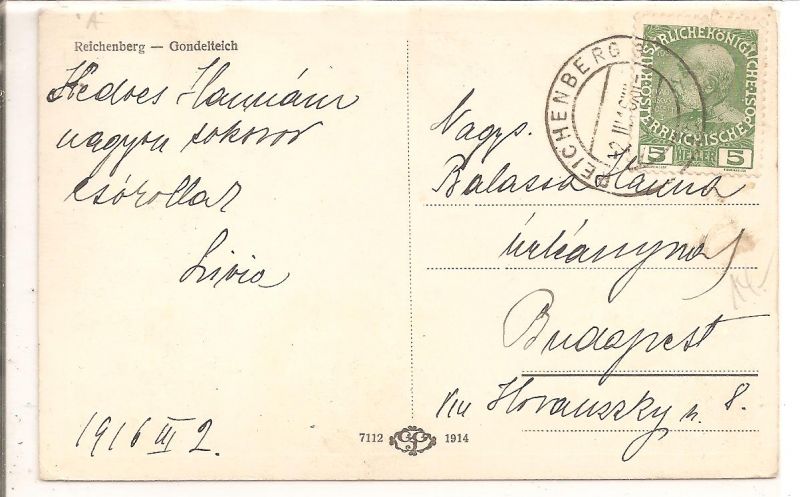 Reichenberg — Gondelteich
Kedves Hannám
nagyon sokszor
csókollaz
Livia
1916 III 2.
7112 1914
REICHENBERG
KAISERLICHE KÖNIGLICHE ÖSTERREICHISCHE POST
5 HELLER 5
Nagys.
Balassa Hanna
úrleánynak
Budapest
VIII Horánszky u. 8.